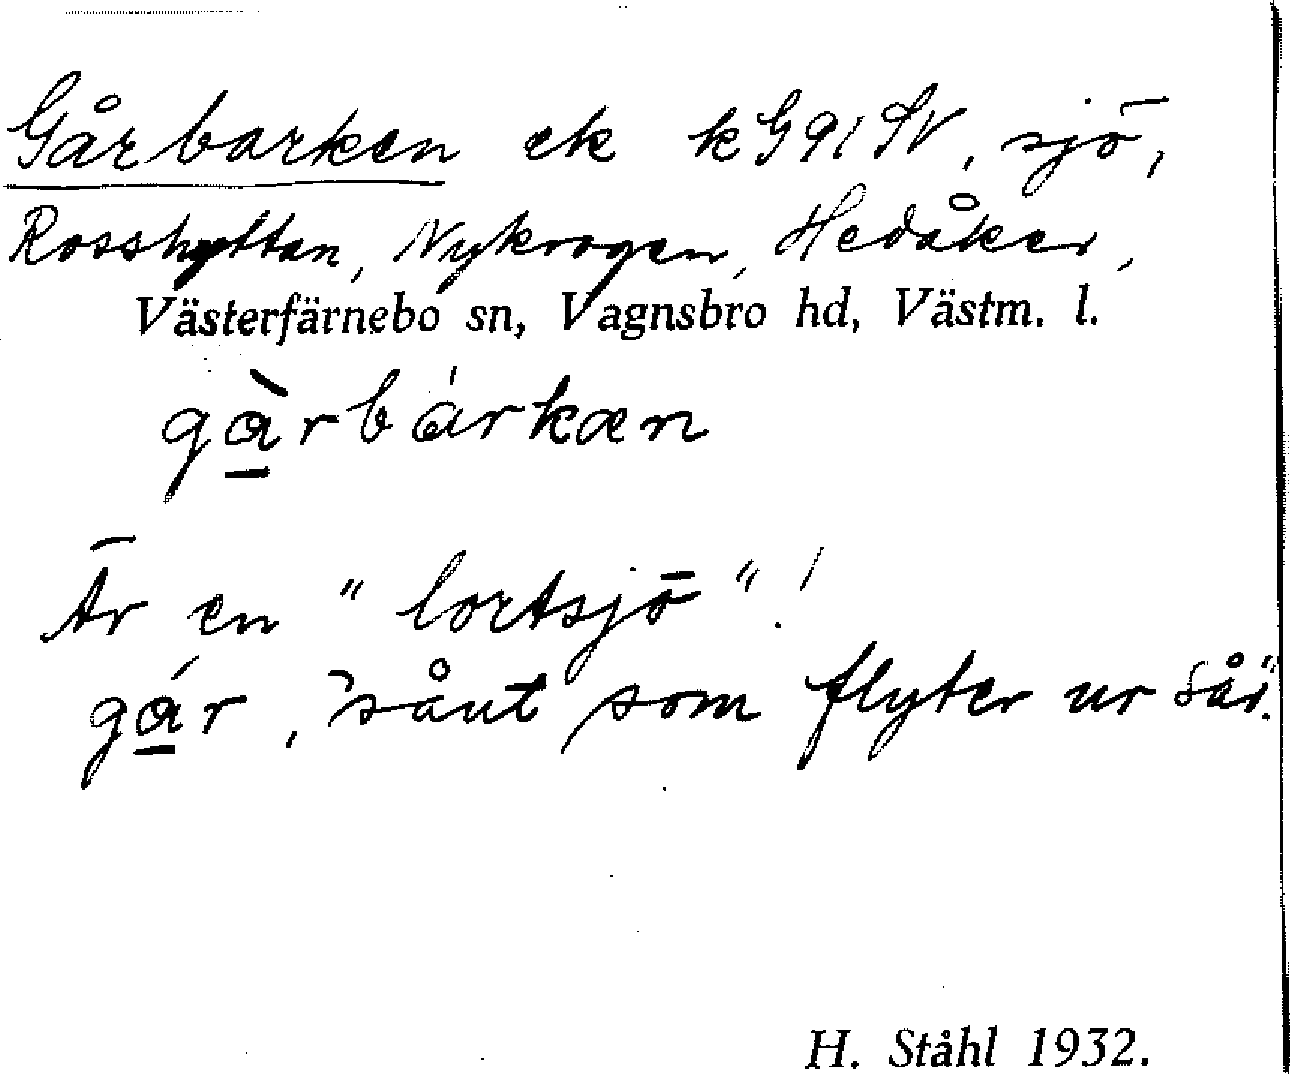 Gårbarken ek k G91 SV, sjö,
Rosshyttan, Nykrogen, Hedåker,
Västerfärnebo sn, Vagnsbro hd, Västm. l.
gàrbárkæn
Är en "lortsjö"!
gár, "sånt som flyter ur sår".
H. Ståhl 1932.